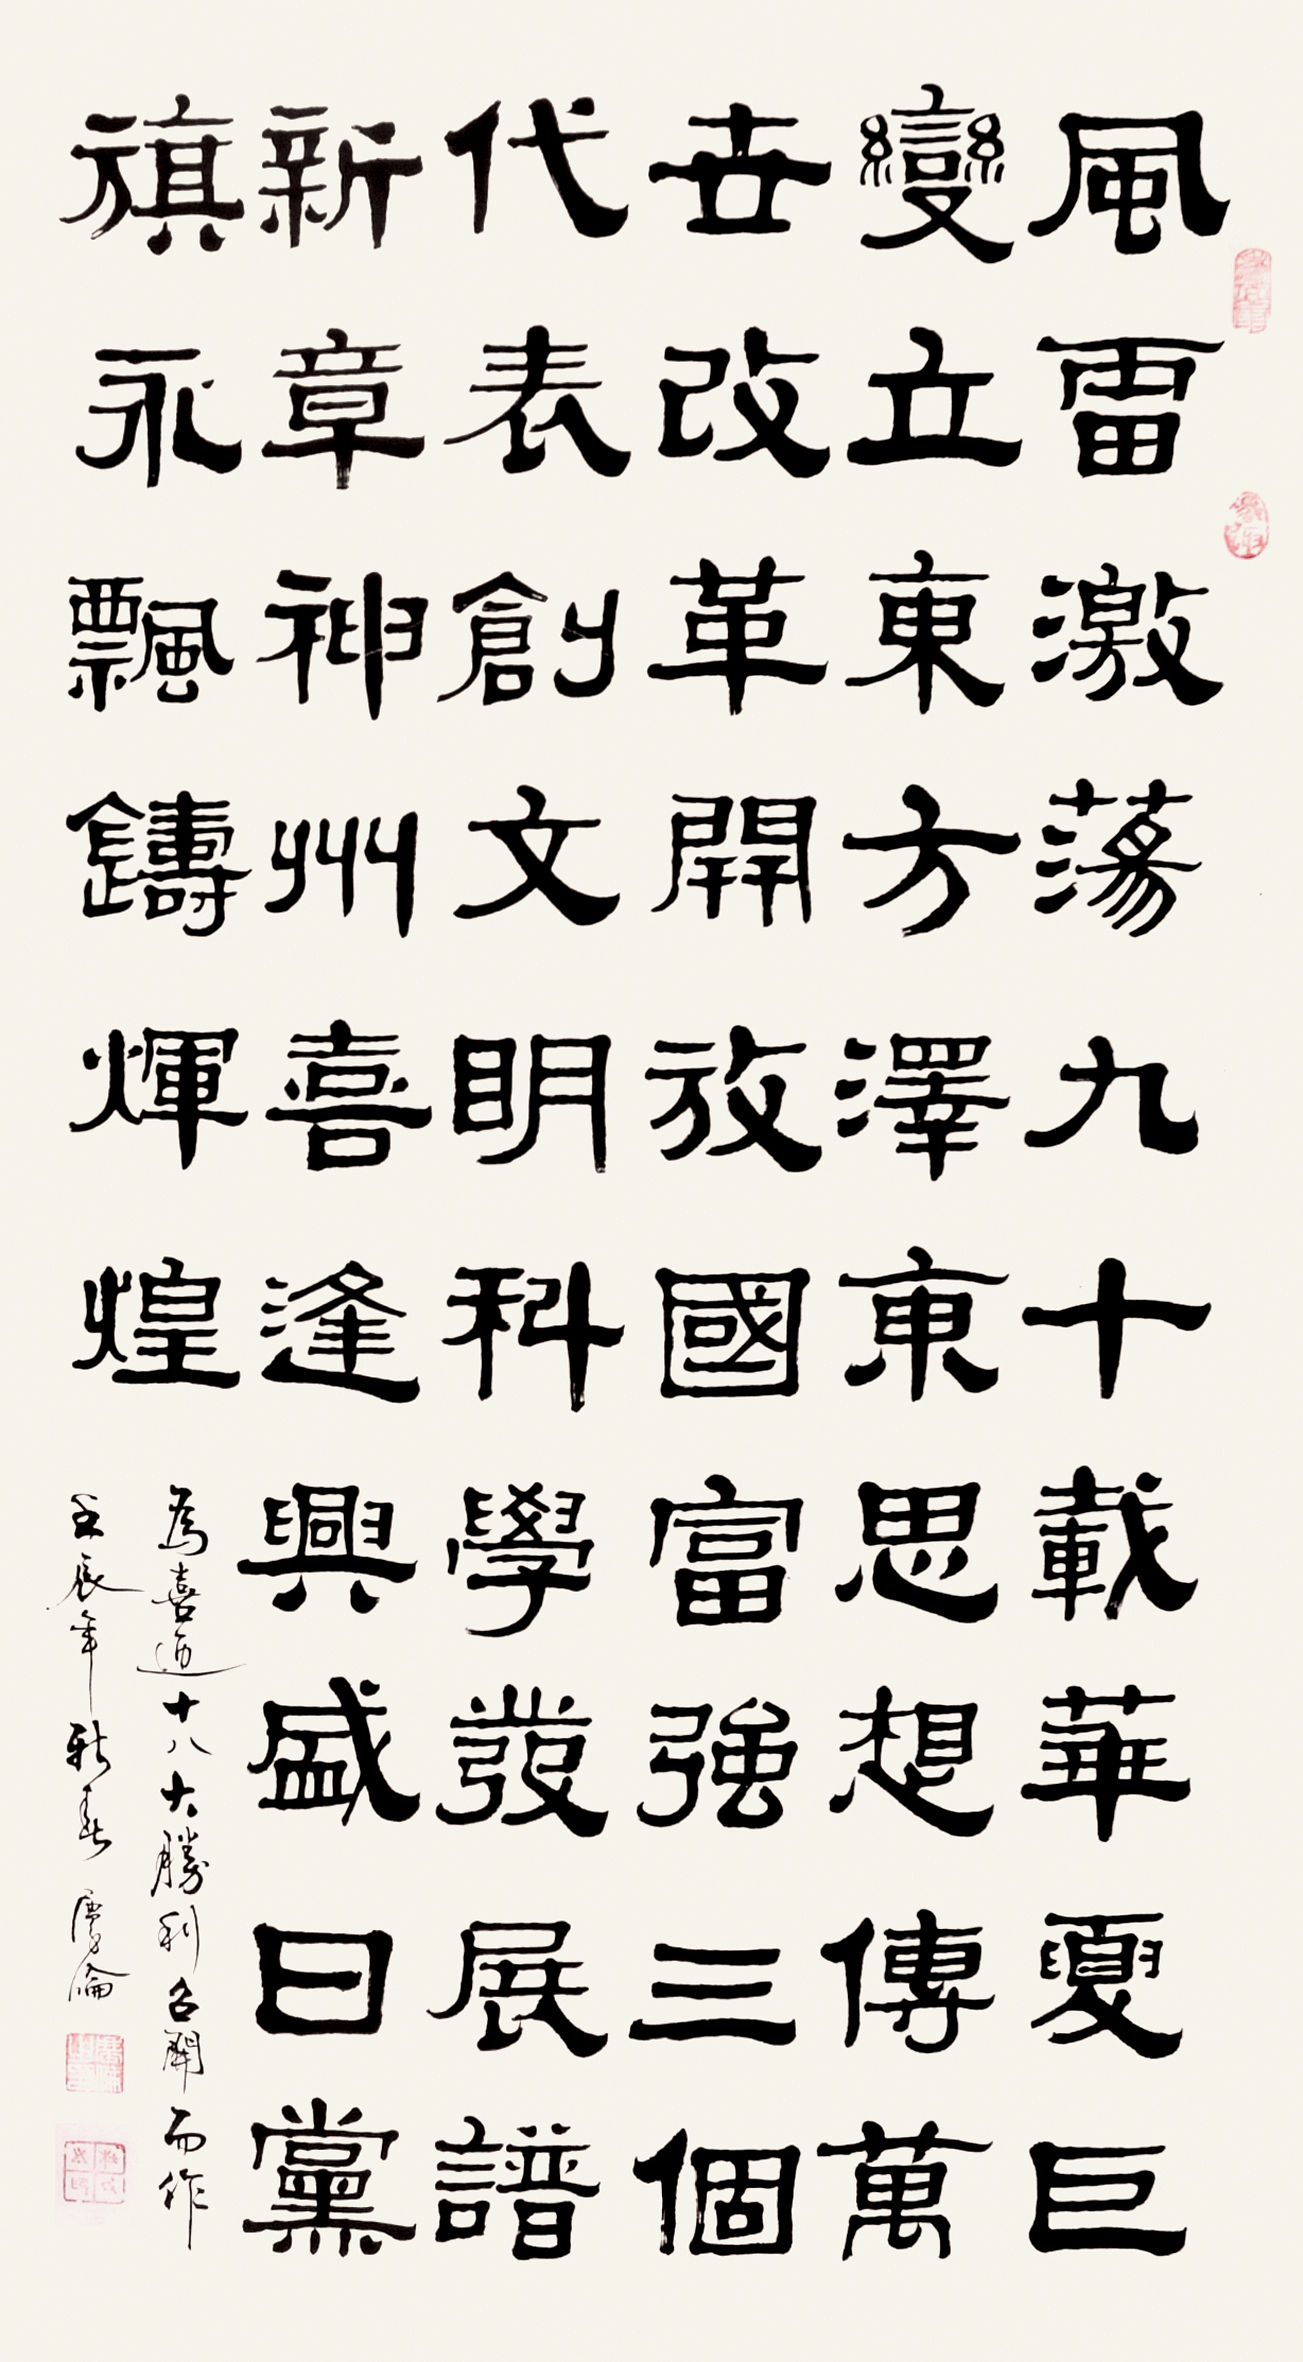 風雷激蕩九十載華夏巨
變立東方澤東思想傳萬
世改革開放國富強三個
代表創文明科學發展譜
新章神州喜逢興盛日黨
旗永飄鑄輝煌
為喜迎十八大勝利召開而作
壬辰年新春